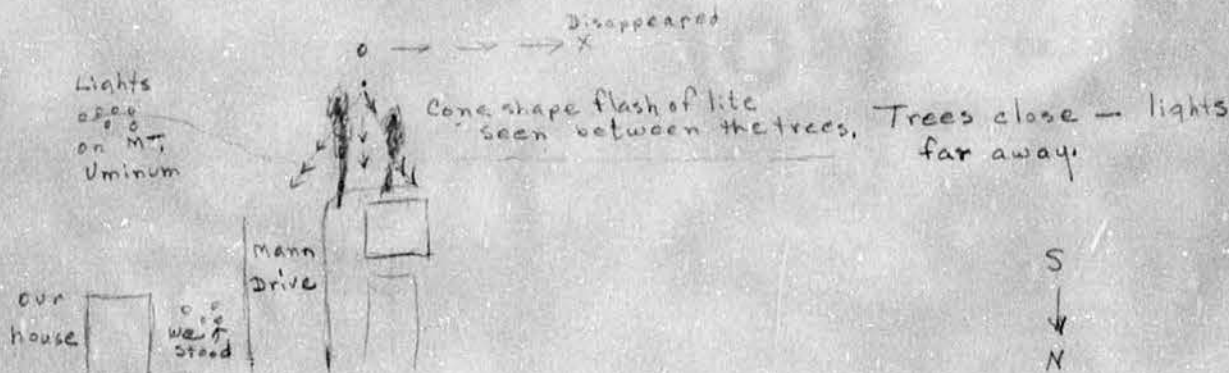 Disappeared
X
Lights
on MT.
Uminum
Cone shape flash of lite
seen between the trees.
Trees close — lights
far away.
Mann
Drive
our
house
we
stood
S
N